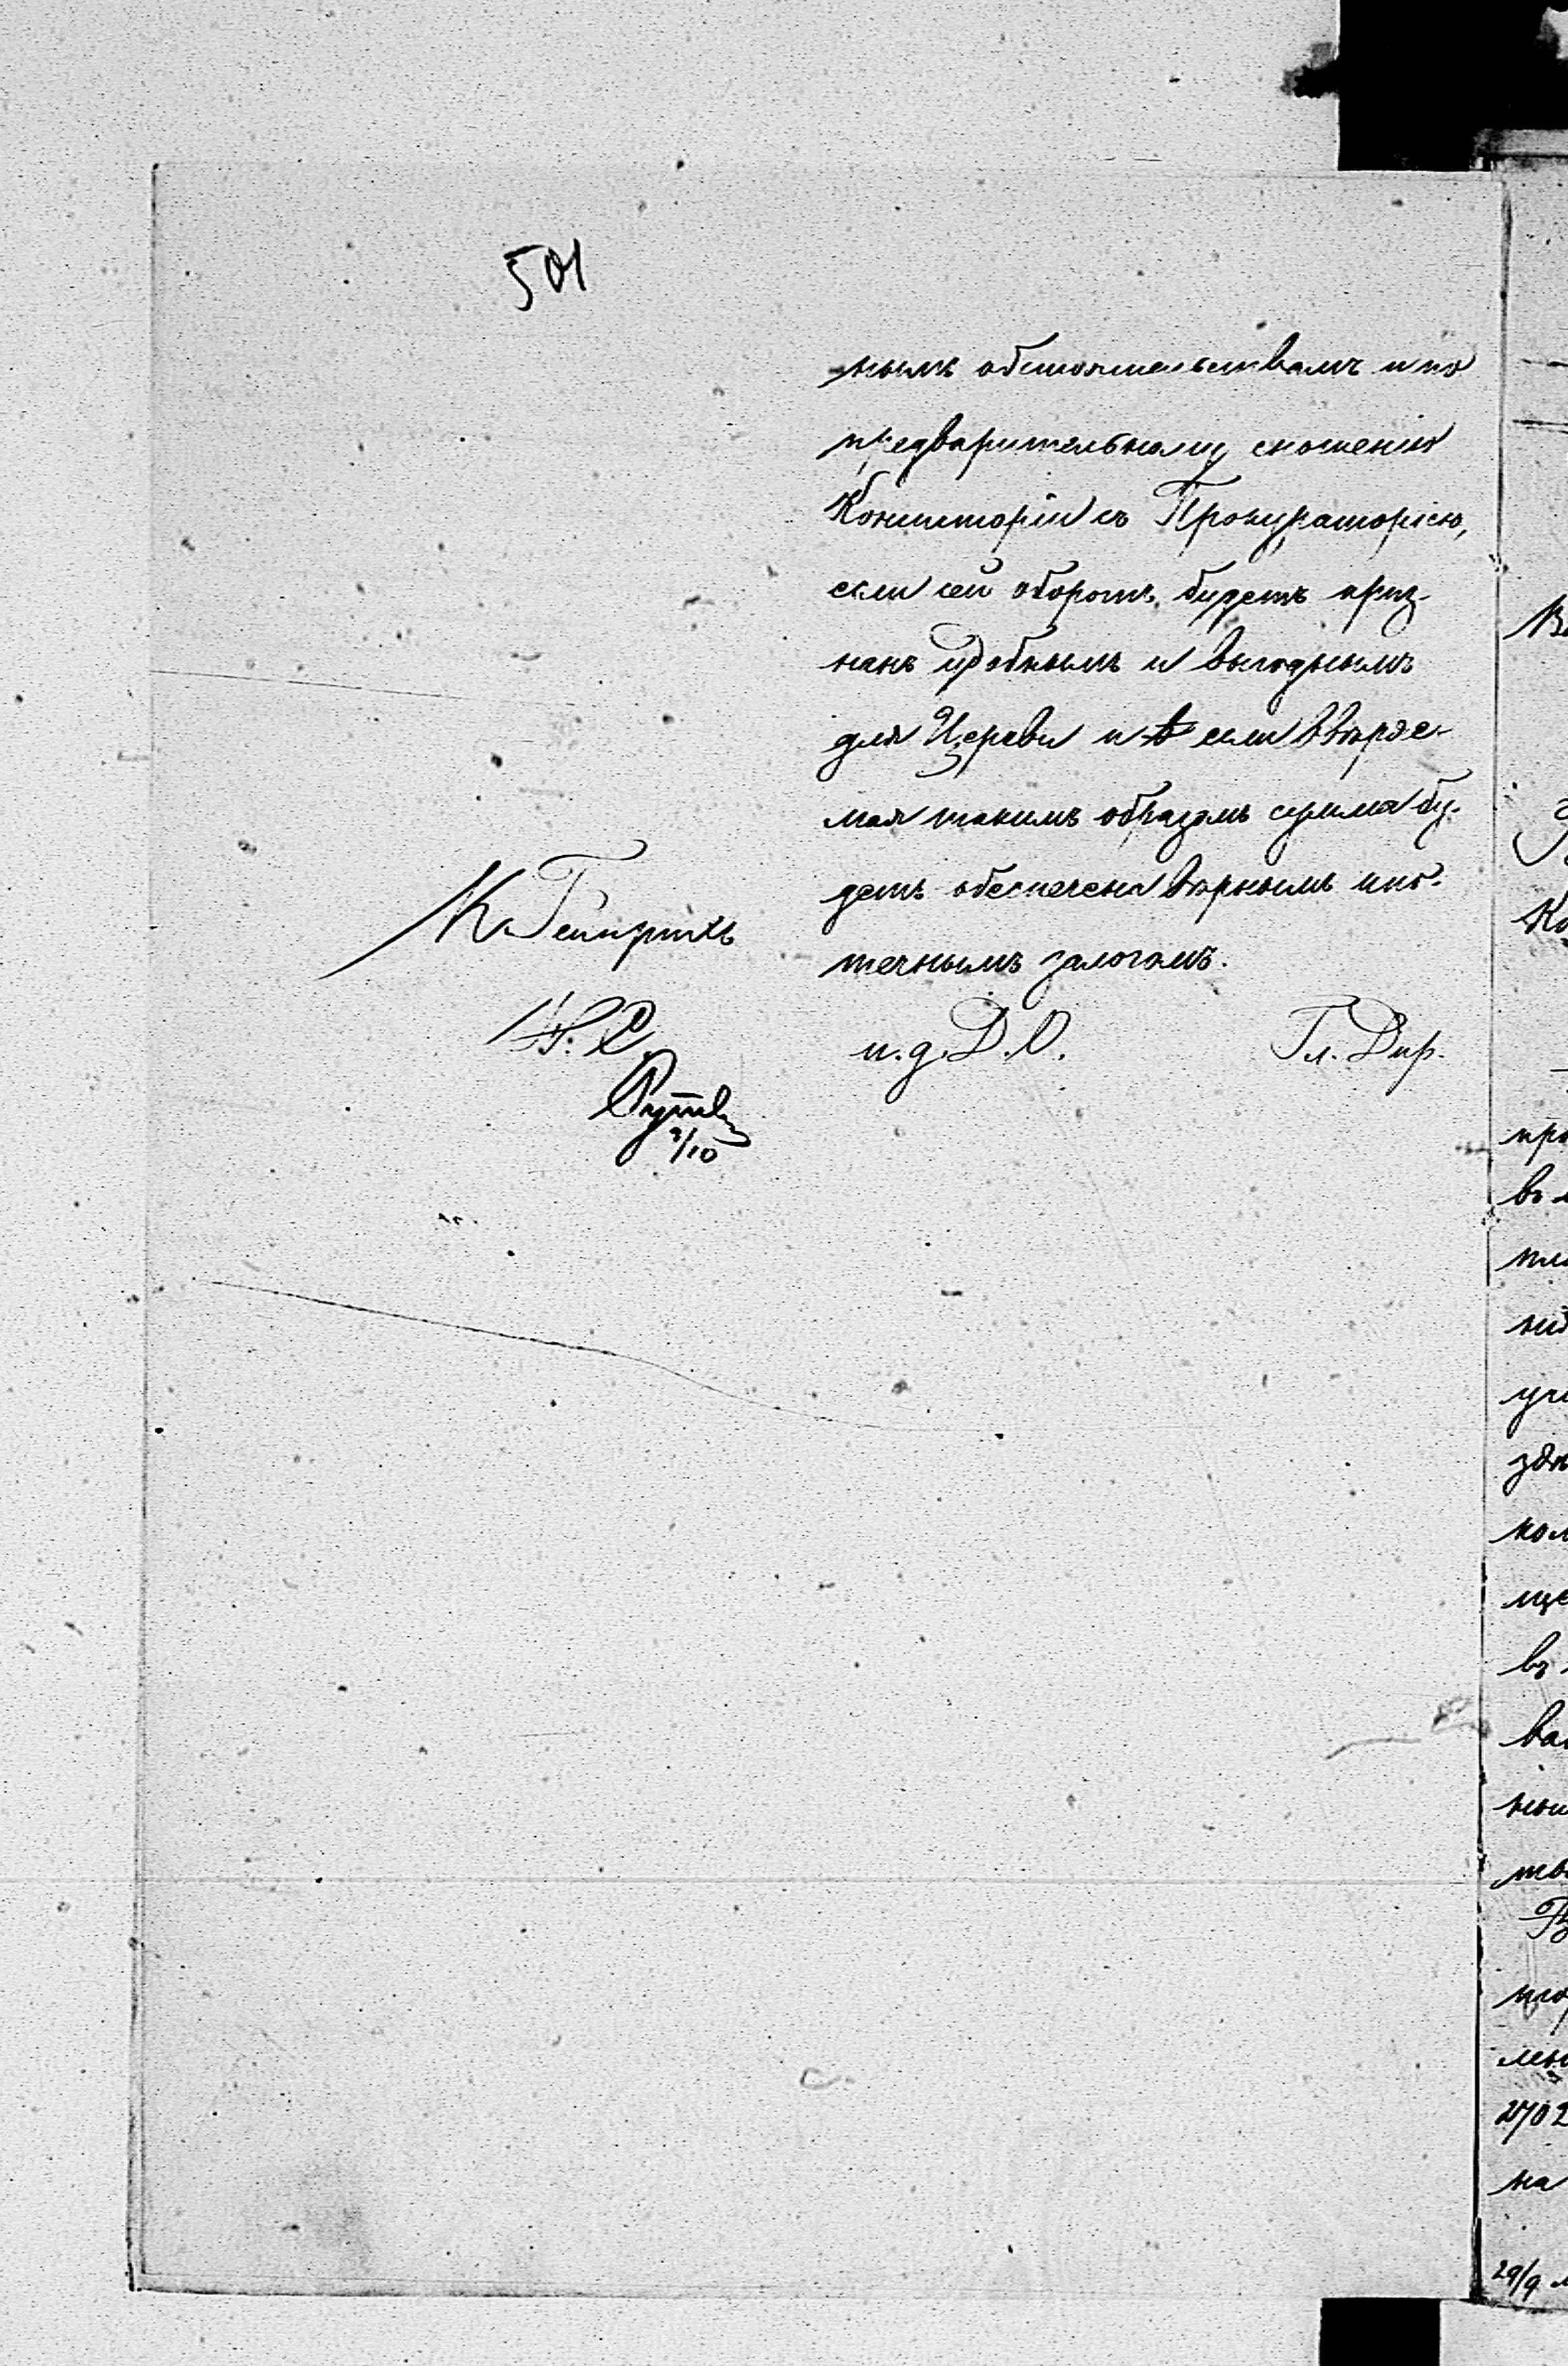 501
нымъ обстоятельствамъ и по
предварительному сношенію
Консисторіи съ Прокураторіею,
если сей оборотъ будетъ приз-
нанъ удобнымъ и выгоднымъ
для Церкви и если ввѣряе-
мая такимъ образомъ сумма бу-
детъ обезпечена вѣрнымъ ипо-
течнымъ залогомъ.
и. д. Д. О. Гл. Дир.
К. Гейнрихъ
9/10